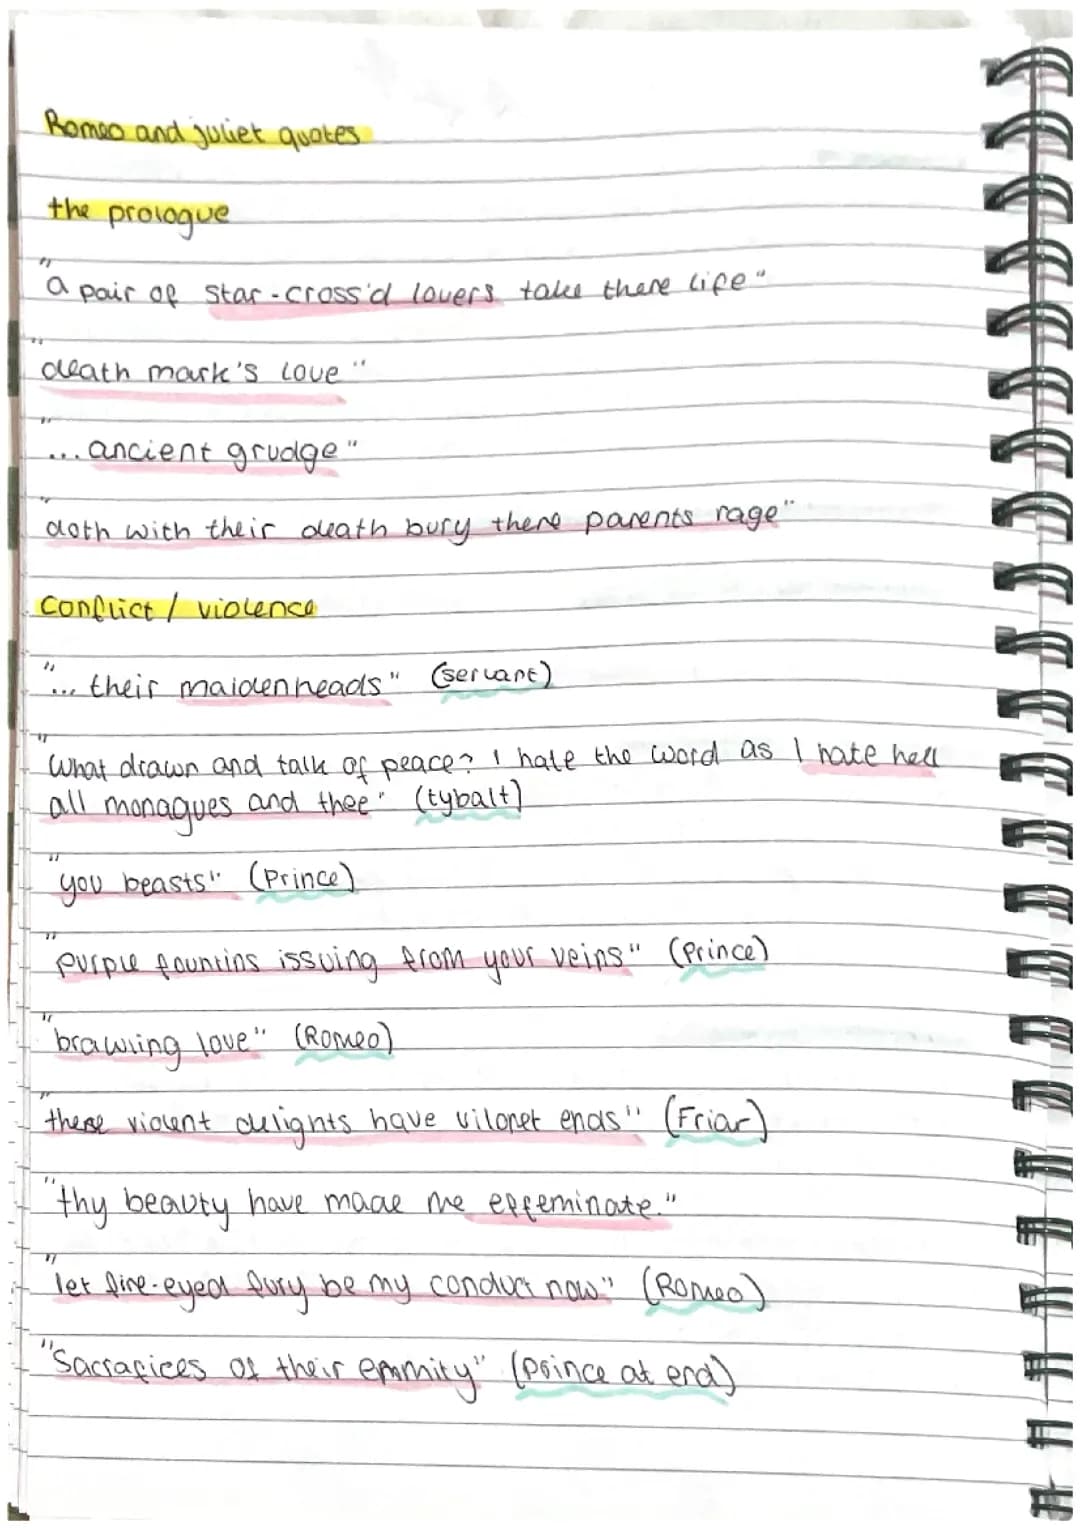 Romeo and juliet quotes
the prologue
"a pair of star-cross'd lovers take there life"
"death mark's love"
"... ancient grudge"
"doth with their death bury there parents rage"
Conflict / violence
"... their maidenheads" (servant)
"What drawn and talk of peace? I hate the word as I hate hell
all monagues and thee" (tybalt)
"you beasts" (Prince)
"purple fountins issuing from your veins" (Prince)
"brawling love" (Romeo)
"these violent delights have vilonet ends" (Friar)
"thy beauty have made me effeminate."
"let fire-eyed fury be my conduct now" (Romeo)
"Sacrafices of their emmity" (prince at end)